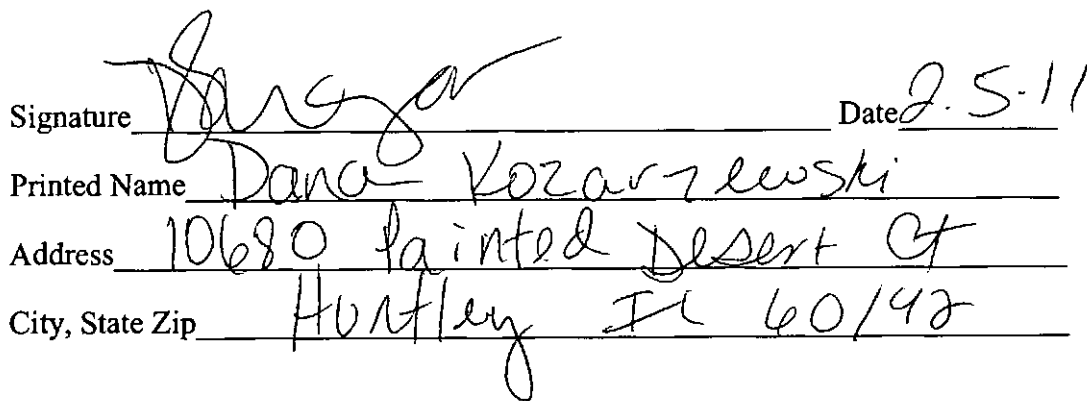 Signature Date 2.5.11
Printed Name Dana Kozarzewski
Address 10680 Painted Desert Ct
City, State Zip Huntley IL 60142